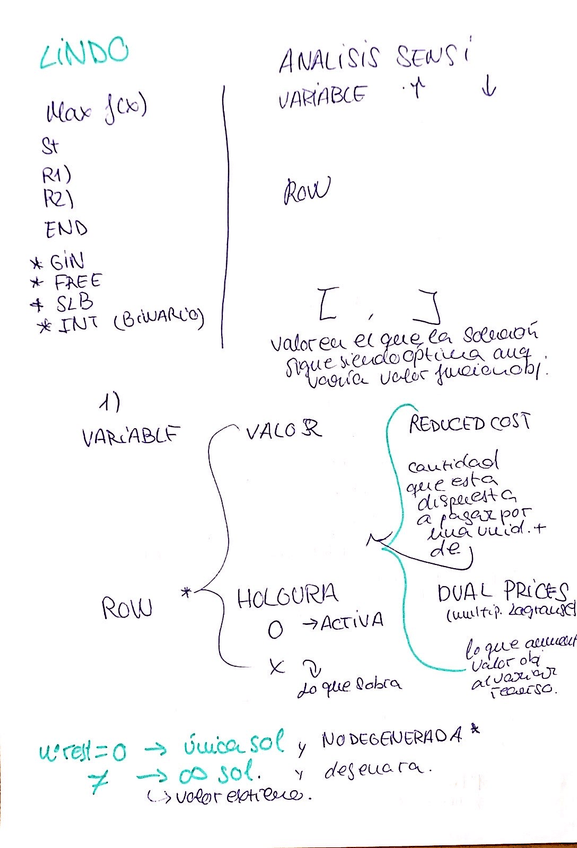 LINDO
Max f(x)
St
R1)
R2)
END
* GIN
* FREE
* SLB
* INT (BINARIO)
ANALISIS SENSI
VARIABLE ↑ ↓
ROW
[ , ]
valor en el que la solución
sigue siendo óptima aunq
varía valor función obj.
1)
VARIABLE
VALOR
REDUCED COST
cantidad
que esta
dispuesta
a pagar por
una unid. +
de
ROW *
HOLGURA
0 → ACTIVA
X
Lo que sobra
DUAL PRICES
(multip. Lagrange)
lo que aument
valor obj
al variar
recurso.
nº rest = 0 → única sol y NO DEGENERADA *
≠ → ∞ sol. y
↳ valor extremo.